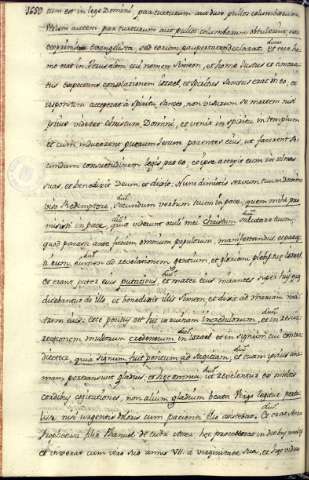 1650
tum est in lege Domini par turturum aut duos pullos columbarum
autem par turturum aut pullos columbarum
Evangelista, sed eorum paupertatem declarat. Et ecce ho-
mo erat in Jerusalem cui nomen Simeon, et homo justus et timora-
tus expectans consolationem Israel, et Spiritus Sanctus erat in eo, et
responsum acceperat a Spiritu Sancto, non visurum se mortem nisi
prius videret Christum Domini, et venit in spiritu in templum
et cum inducerent puerum Jesum parentes ejus, ut facerent se-
cundum consuetudinem legis pro eo, et ipse accepit eum in ulnas
suas, et benedixit Deum, et dixit. Nunc dimittis servum tuum Domine
viso Redemptore, secundum verbum tuum in pace, quem mihi pro-
misisti in pace, quia viderunt oculi mei Christum salutare tuum,
quod parasti ante faciem omnium populorum, manifestandus
lumen ad revelationem gentium et gloriam plebis tuæ Israel.
et erant pater ejus putativus et mater ejus mirantes super his quæ
dicebantur de illo et benedixit illis Simeon, et dixit ad Mariam ma-
trem ejus: ecce positus est hic in ruinam incredulorum et in resur-
rectionem multorum credentium in Israel et in signum cui contra-
dicetur, quia signum fuit positum ad sagittam, et tuam ipsius ani-
mam pertransivit gladius, ut revelentur ex multis
cordibus cogitationes, non alium gladium beata Virgo
nisi ingentis doloris cum patienti filio constabat. Et erat Anna
Prophetissa filia Phanuel de tribu Aser. hæc processerat in diebus multis
et vixerat cum viro suo annis VII. a virginitate sua, et hæc vidua